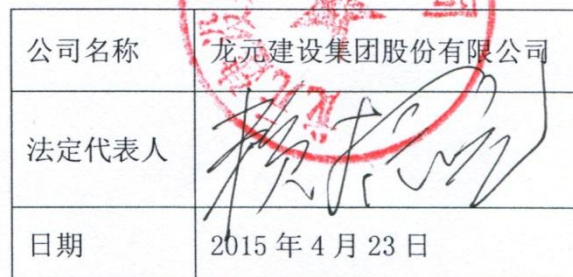 公司名称 龙元建设集团股份有限公司
法定代表人
日期 2015年4月23日